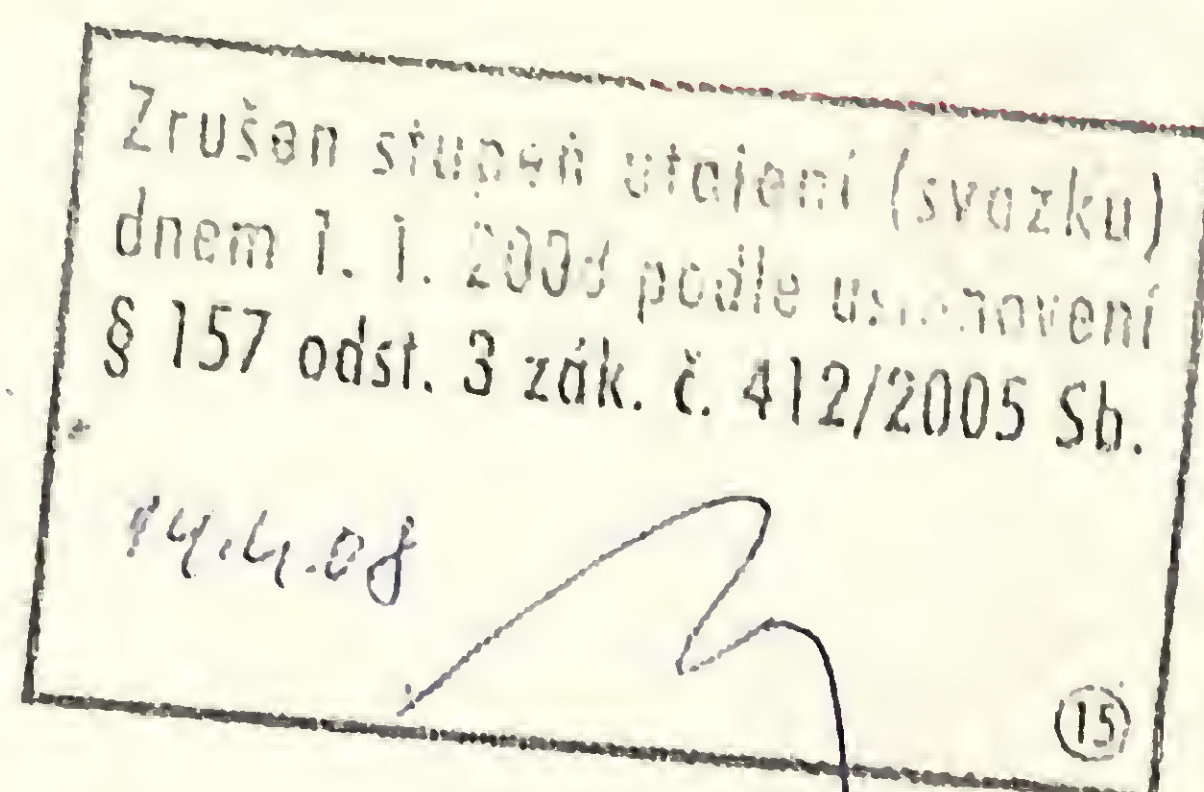 Zrušen stupeň utajení (svazku)
dnem 1. 1. 2008 podle ustanovení
§ 157 odst. 3 zák. č. 412/2005 Sb.
14.4.08
15